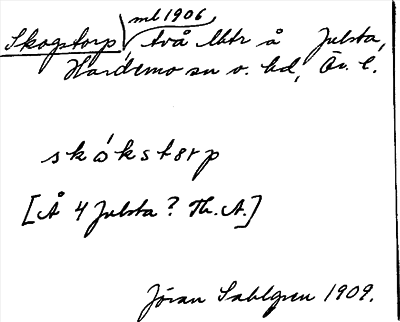 ml 1906
Skogstorp, två lbtr å Julsta,
Hardemo sn o. hd, Ör. l.
skòkstɵrp
[Å 4 Julsta? Th. A.]
Jöran Sahlgren 1909.